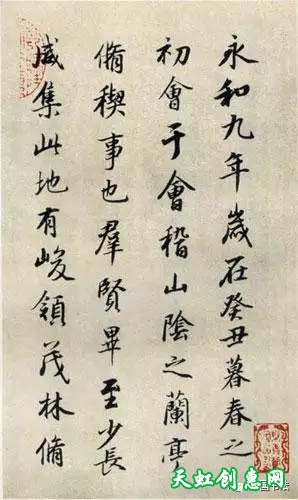 永和九年歲在癸丑暮春之
初會于會稽山陰之蘭亭
脩稧事也羣賢畢至少長
咸集此地有峻領茂林脩
天虹创意网